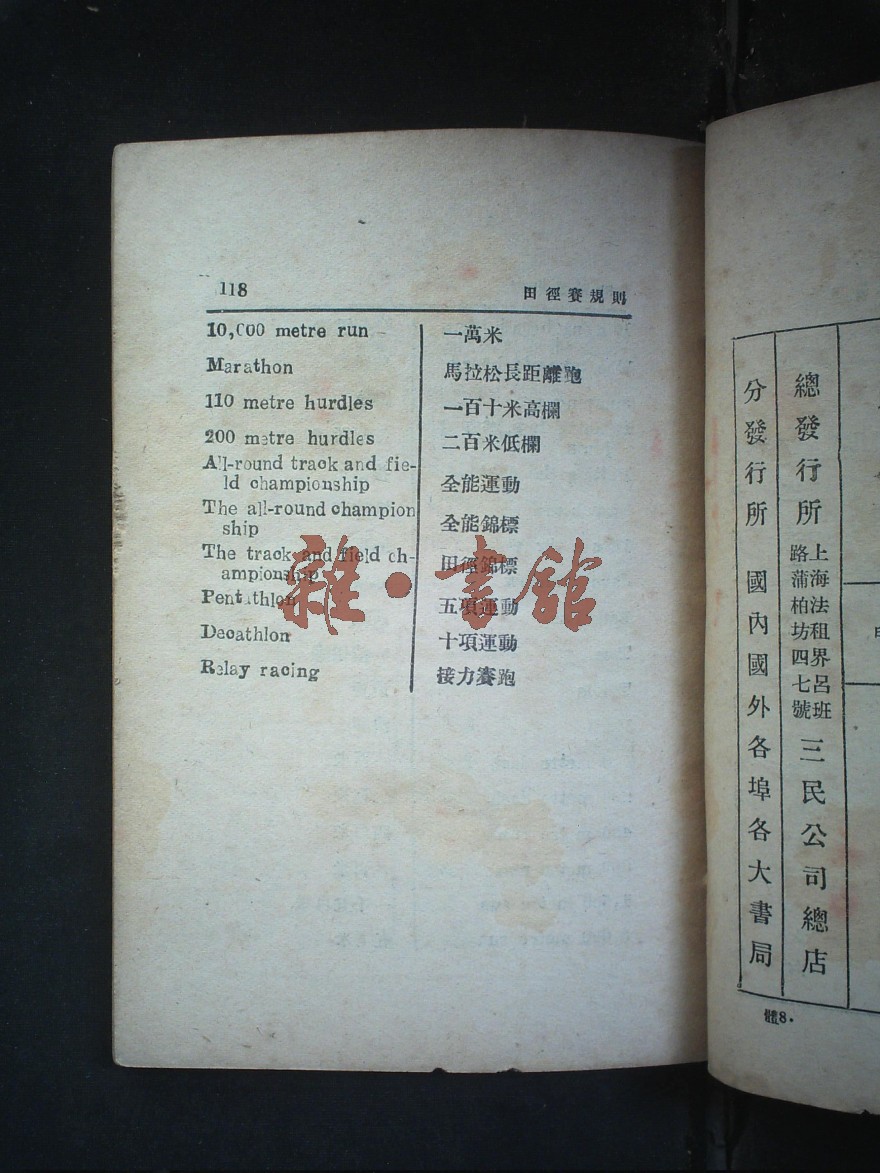 118 田徑賽規則
10,000 metre run 一萬米
Marathon 馬拉松長距離跑
110 metre hurdles 一百十米高欄
200 metre hurdles 二百米低欄
All-round track and fie-
ld championship 全能運動
The all-round champion
ship 全能錦標
The track and field ch-
ampionship 田徑錦標
Pentathlon 五項運動
Decathlon 十項運動
Relay racing 接力賽跑
雜·書館
總發行所 上海法租界呂班路蒲柏坊四七號 三民公司總店
分發行所 國內國外各埠各大書局
體8.